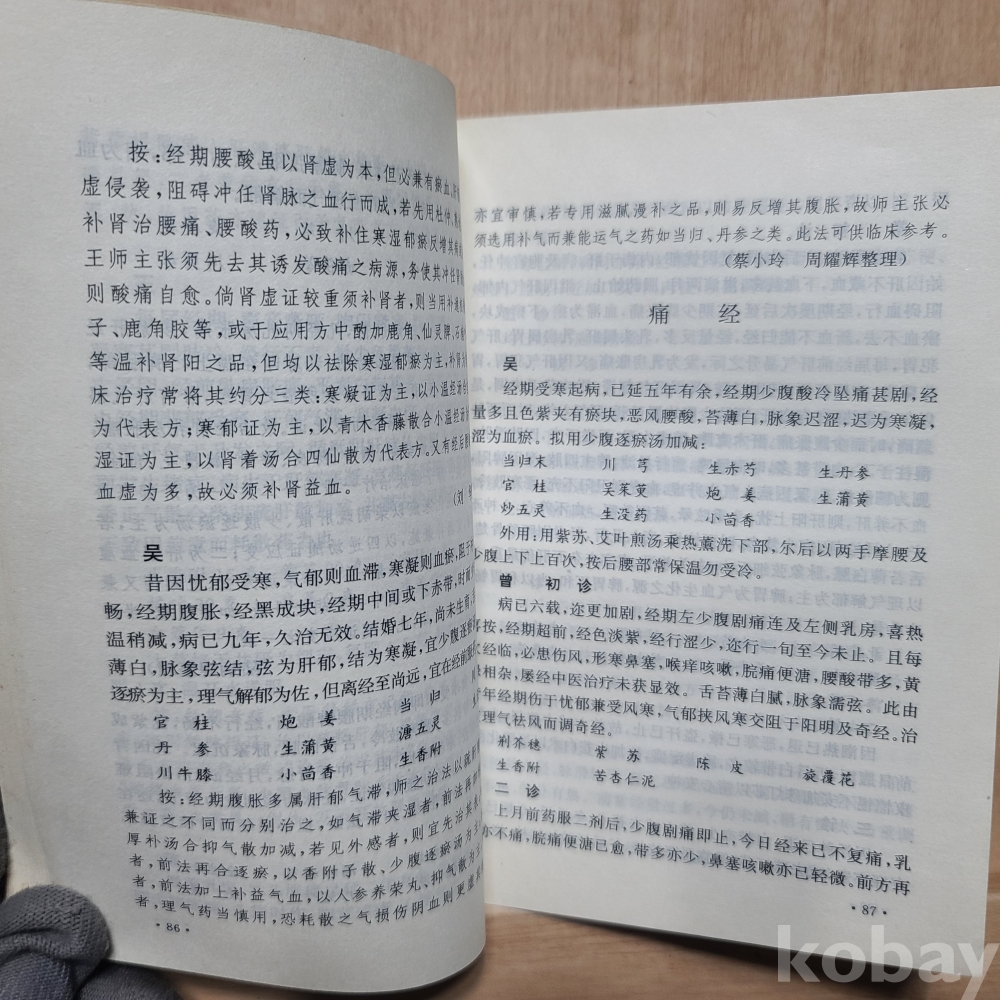 按:经期腰酸虽以肾虚为本,但必兼有瘀血、
虚侵袭,阻碍冲任肾脉之血行而成,若先用杜仲、
补肾治腰痛、腰酸药,必致补住寒湿郁瘀反增其
王师主张须先去其诱发酸痛之病源,务使其冲任
则酸痛自愈。倘肾虚证较重须补肾者,则当用补
子、鹿角胶等,或于应用方中酌加鹿角、仙灵脾、
等温补肾阳之品,但均以祛除寒湿郁瘀为主,补肾
床治疗常将其约分三类:寒凝证为主,以小温经汤
为代表方;寒郁证为主,以青木香藤散合小温经汤
湿证为主,以肾着汤合四仙散为代表方。又有经后
血虚为多,故必须补肾益血。
吴
昔因忧郁受寒,气郁则血滞,寒凝则血瘀,阻于
畅,经期腹胀,经黑成块,经期中间或下赤带,时而
温稍减,病已九年,久治无效。结婚七年,尚未生育,
薄白,脉象弦结,弦为肝郁,结为寒凝,宜少腹逐瘀
逐瘀为主,理气解郁为佐,但离经至尚远,宜在经前
官 桂 炮 姜 当 归
丹 参 生蒲黄 溏五灵
川牛膝 小茴香 生香附
按:经期腹胀多属肝郁气滞,师之治法以
兼证之不同而分别治之,如气滞夹湿者,前法再
厚朴汤合抑气散加减,若见外感者,则宜先治其
者,前法再合逐瘀,以香附子散、少腹逐瘀汤为
者,前法加上补益气血,以人参养荣丸、抑气散为主
者,理气药当慎用,恐耗散之气损伤阴血则更
·86·
亦宜审慎,若专用滋腻漫补之品,则易反增其腹胀,故师主张必
须选用补气而兼能运气之药如当归、丹参之类。此法可供临床参考。
(蔡小玲 周耀辉整理)
痛 经
吴
经期受寒起病,已延五年有余,经期少腹酸冷坠痛甚剧,经
量多且色紫夹有瘀块,恶风腰酸,苔薄白,脉象迟涩,迟为寒凝,
涩为血瘀。拟用少腹逐瘀汤加减:
当归末 川 芎 生赤芍 生丹参
官 桂 吴茱萸 炮 姜 生蒲黄
炒五灵 生没药 小茴香
外用:用紫苏、艾叶煎汤乘热薰洗下部,尔后以两手摩腰及
少腹上下上百次,按后腰部常保温勿受冷。
曾 初 诊
病已六载,迩更加剧,经期左少腹剧痛连及左侧乳房,喜热
按,经期超前,经色淡紫,经行涩少,迩行一旬至今未止。且每
经临,必患伤风,形寒鼻塞,喉痒咳嗽,脘痛便溏,腰酸带多,黄
相杂,屡经中医治疗未获显效。舌苔薄白腻,脉象濡弦。此由
年经期伤于忧郁兼受风寒,气郁挟风寒交阻于阳明及奇经。治
理气祛风而调奇经。
荆芥穗 紫 苏 陈 皮 旋覆花
生香附 苦杏仁泥
二 诊
上月前药服二剂后,少腹剧痛即止,今日经来已不复痛,乳
亦不痛,脘痛便溏已愈,带多亦少,鼻塞咳嗽亦已轻微。前方再
·87·
kobay